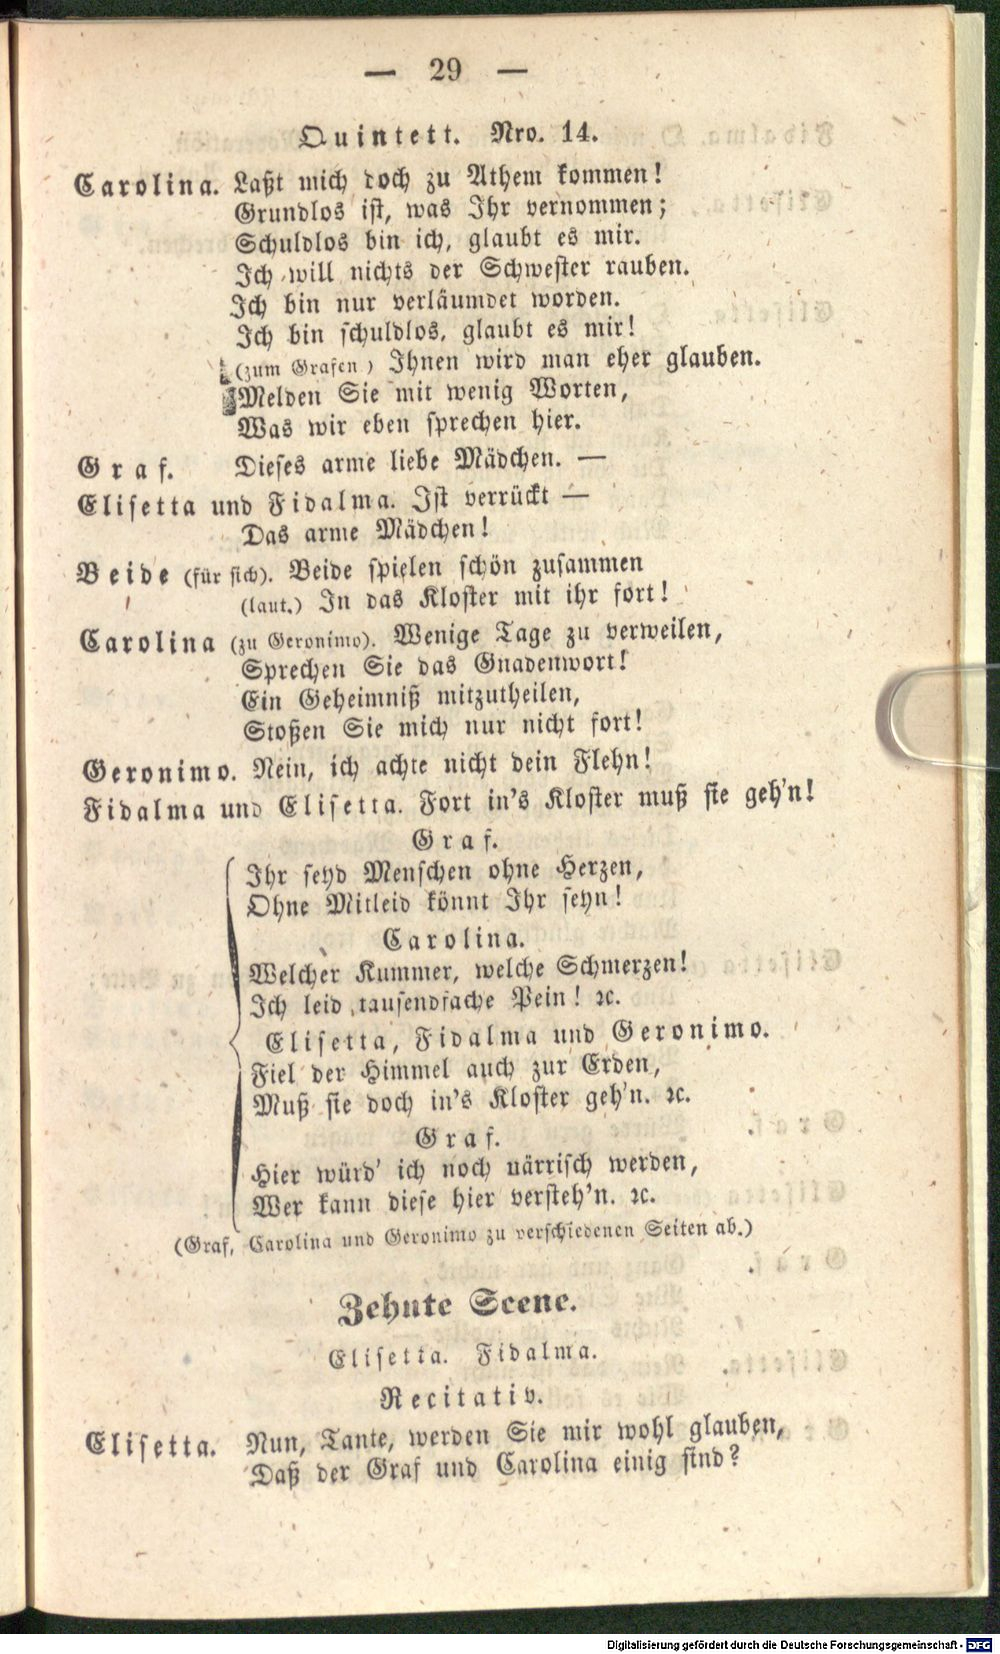 — 29 —
Quintett. Nro. 14.
Carolina. Laßt mich doch zu Athem kommen!
Grundlos ist, was Ihr vernommen;
Schuldlos bin ich, glaubt es mir.
Ich will nichts der Schwester rauben.
Ich bin nur verläumdet worden.
Ich bin schuldlos, glaubt es mir!
(zum Grafen) Ihnen wird man eher glauben.
Melden Sie mit wenig Worten,
Was wir eben sprechen hier.
Graf. Dieses arme liebe Mädchen. —
Elisetta und Fidalma. Ist verrückt —
Das arme Mädchen!
Beide (für sich). Beide spielen schön zusammen
(laut.) In das Kloster mit ihr fort!
Carolina (zu Geronimo). Wenige Tage zu verweilen,
Sprechen Sie das Gnadenwort!
Ein Geheimniß mitzutheilen,
Stoßen Sie mich nur nicht fort!
Geronimo. Nein, ich achte nicht dein Flehn!
Fidalma und Elisetta. Fort in's Kloster muß sie geh'n!
Graf.
Ihr seyd Menschen ohne Herzen,
Ohne Mitleid könnt Ihr seyn!
Carolina.
Welcher Kummer, welche Schmerzen!
Ich leid tausendfache Pein! ꝛc.
Elisetta, Fidalma und Geronimo.
Fiel der Himmel auch zur Erden,
Muß sie doch in's Kloster geh'n. ꝛc.
Graf.
Hier würd' ich noch närrisch werden,
Wer kann diese hier versteh'n. ꝛc.
(Graf, Carolina und Geronimo zu verschiedenen Seiten ab.)
Zehnte Scene.
Elisetta. Fidalma.
Recitativ.
Elisetta. Nun, Tante, werden Sie mir wohl glauben,
Daß der Graf und Carolina einig sind?
Digitalisierung gefördert durch die Deutsche Forschungsgemeinschaft - DFG